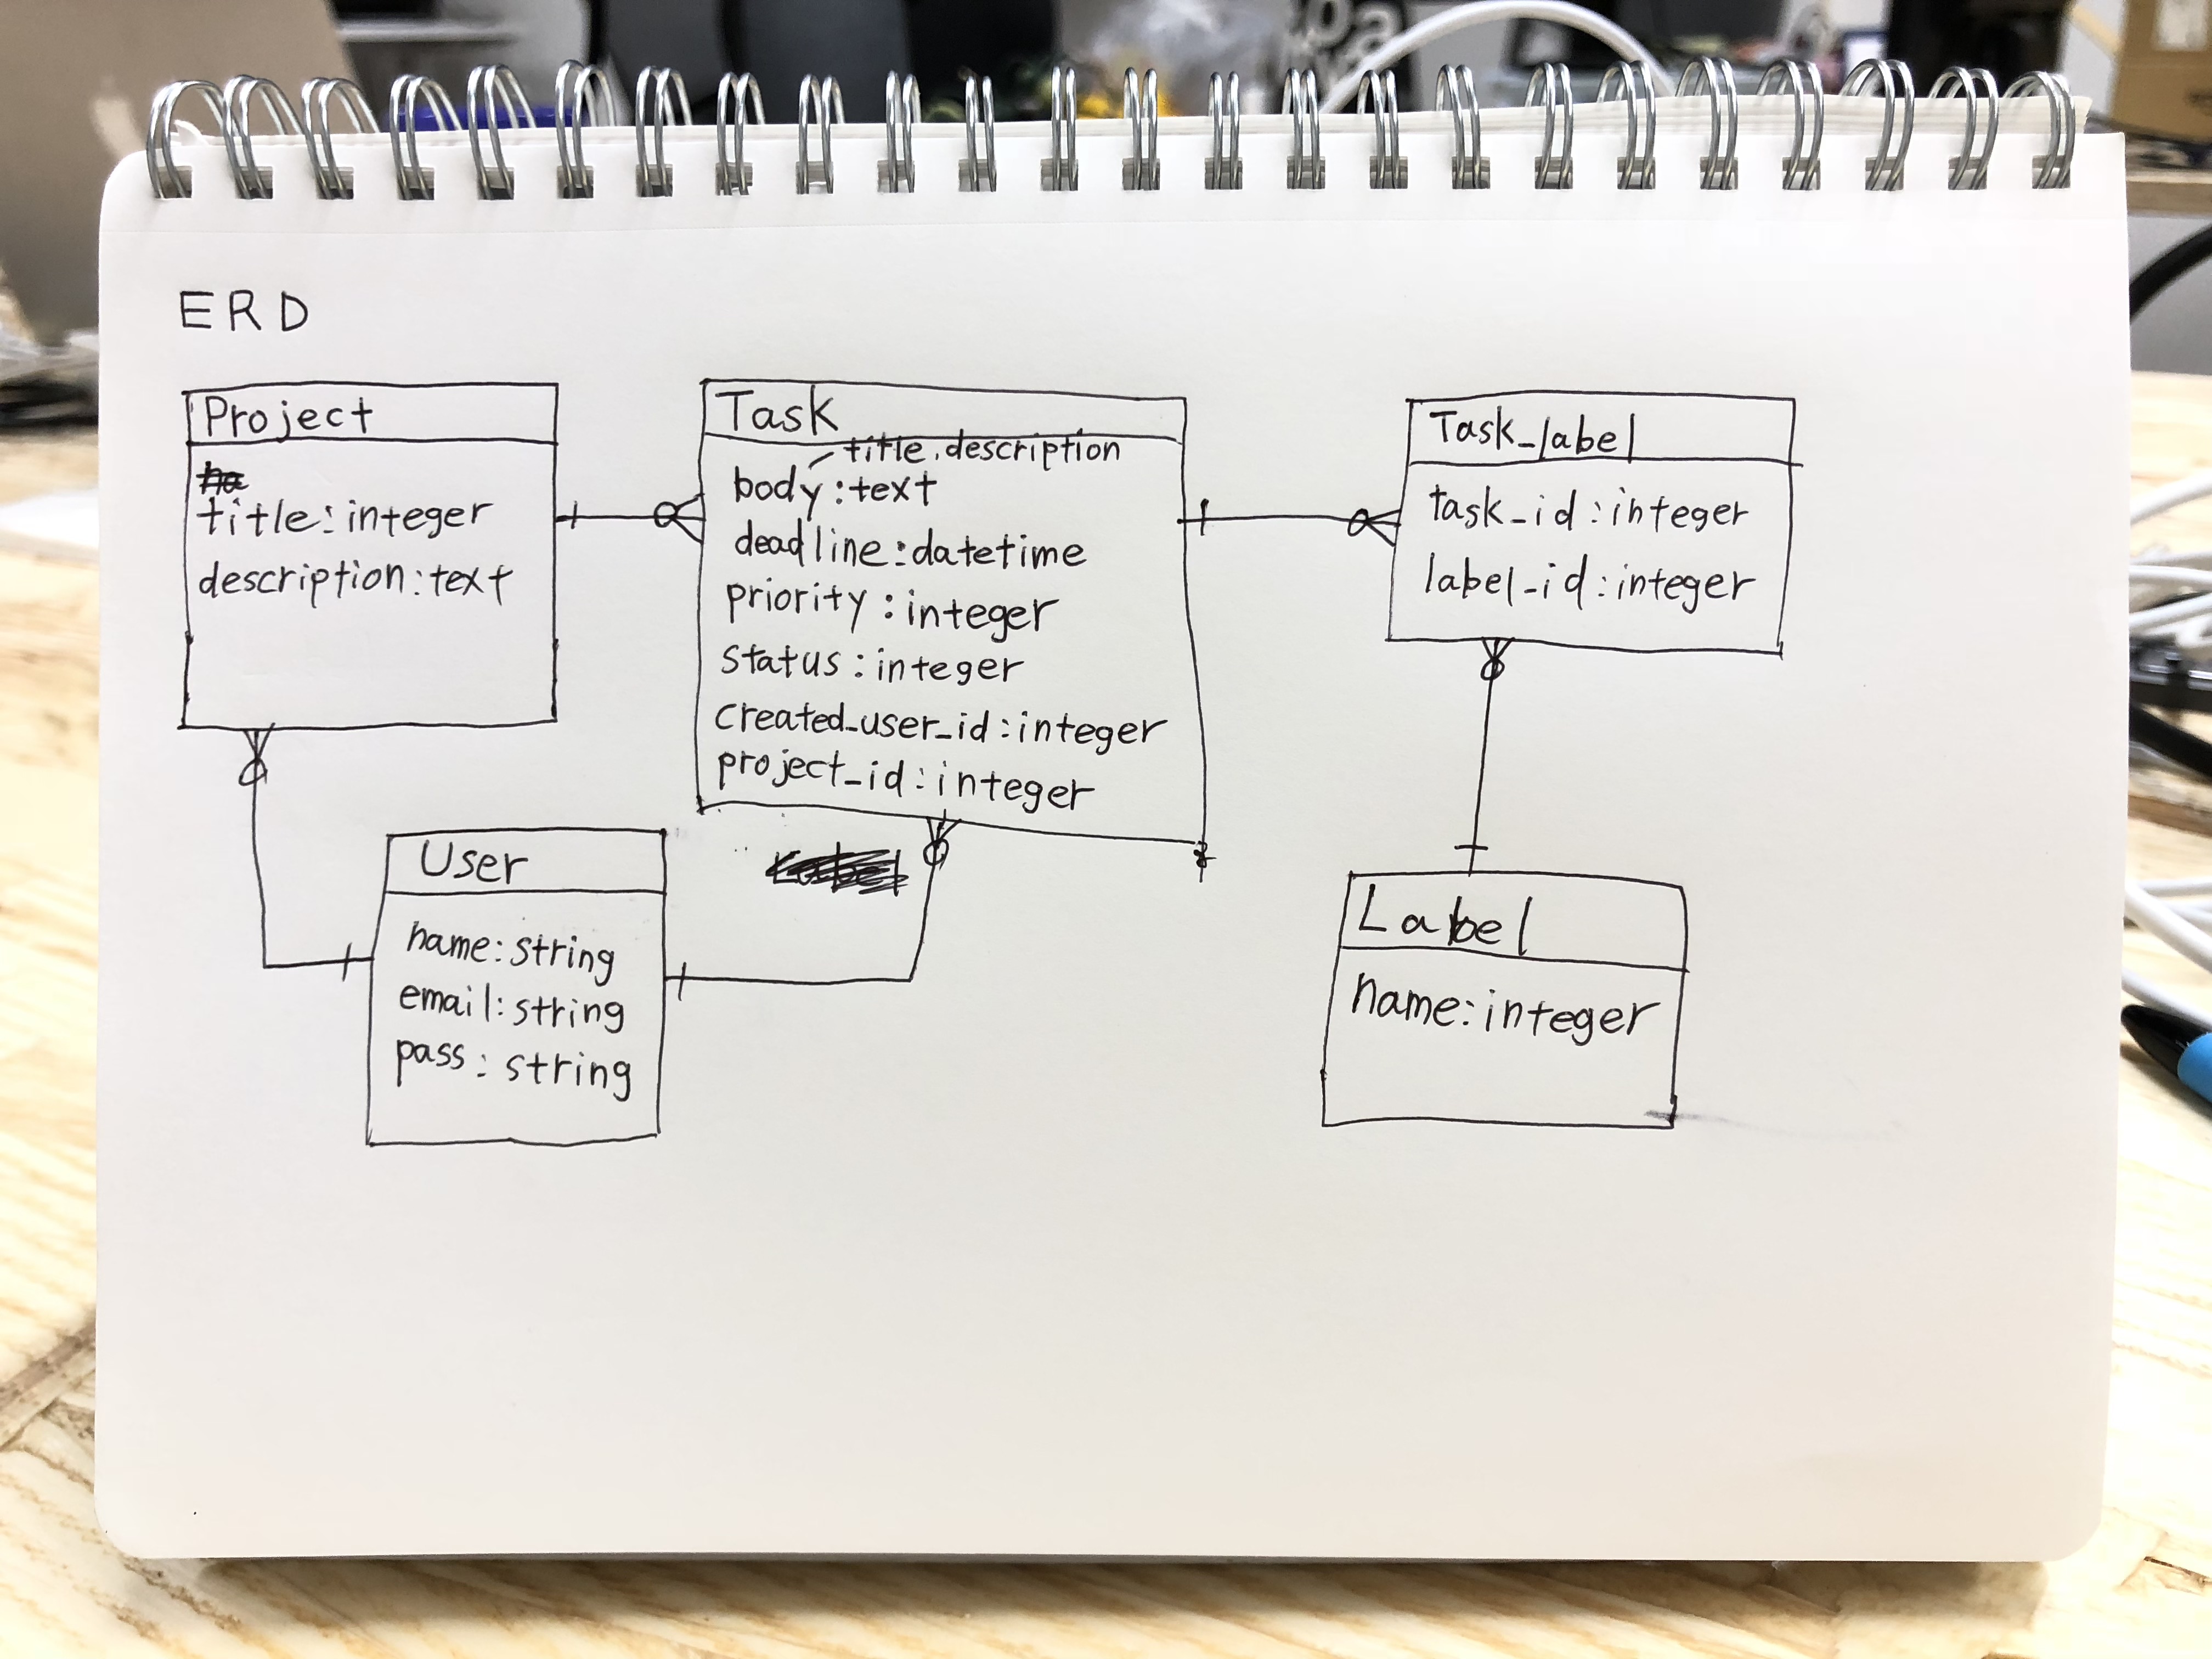 ERD
Project
title: integer
description: text
Task
title, description
body: text
deadline: datetime
priority: integer
status: integer
created_user_id: integer
project_id: integer
Task_label
task_id: integer
label_id: integer
User
name: string
email: string
pass: string
Label
name: integer